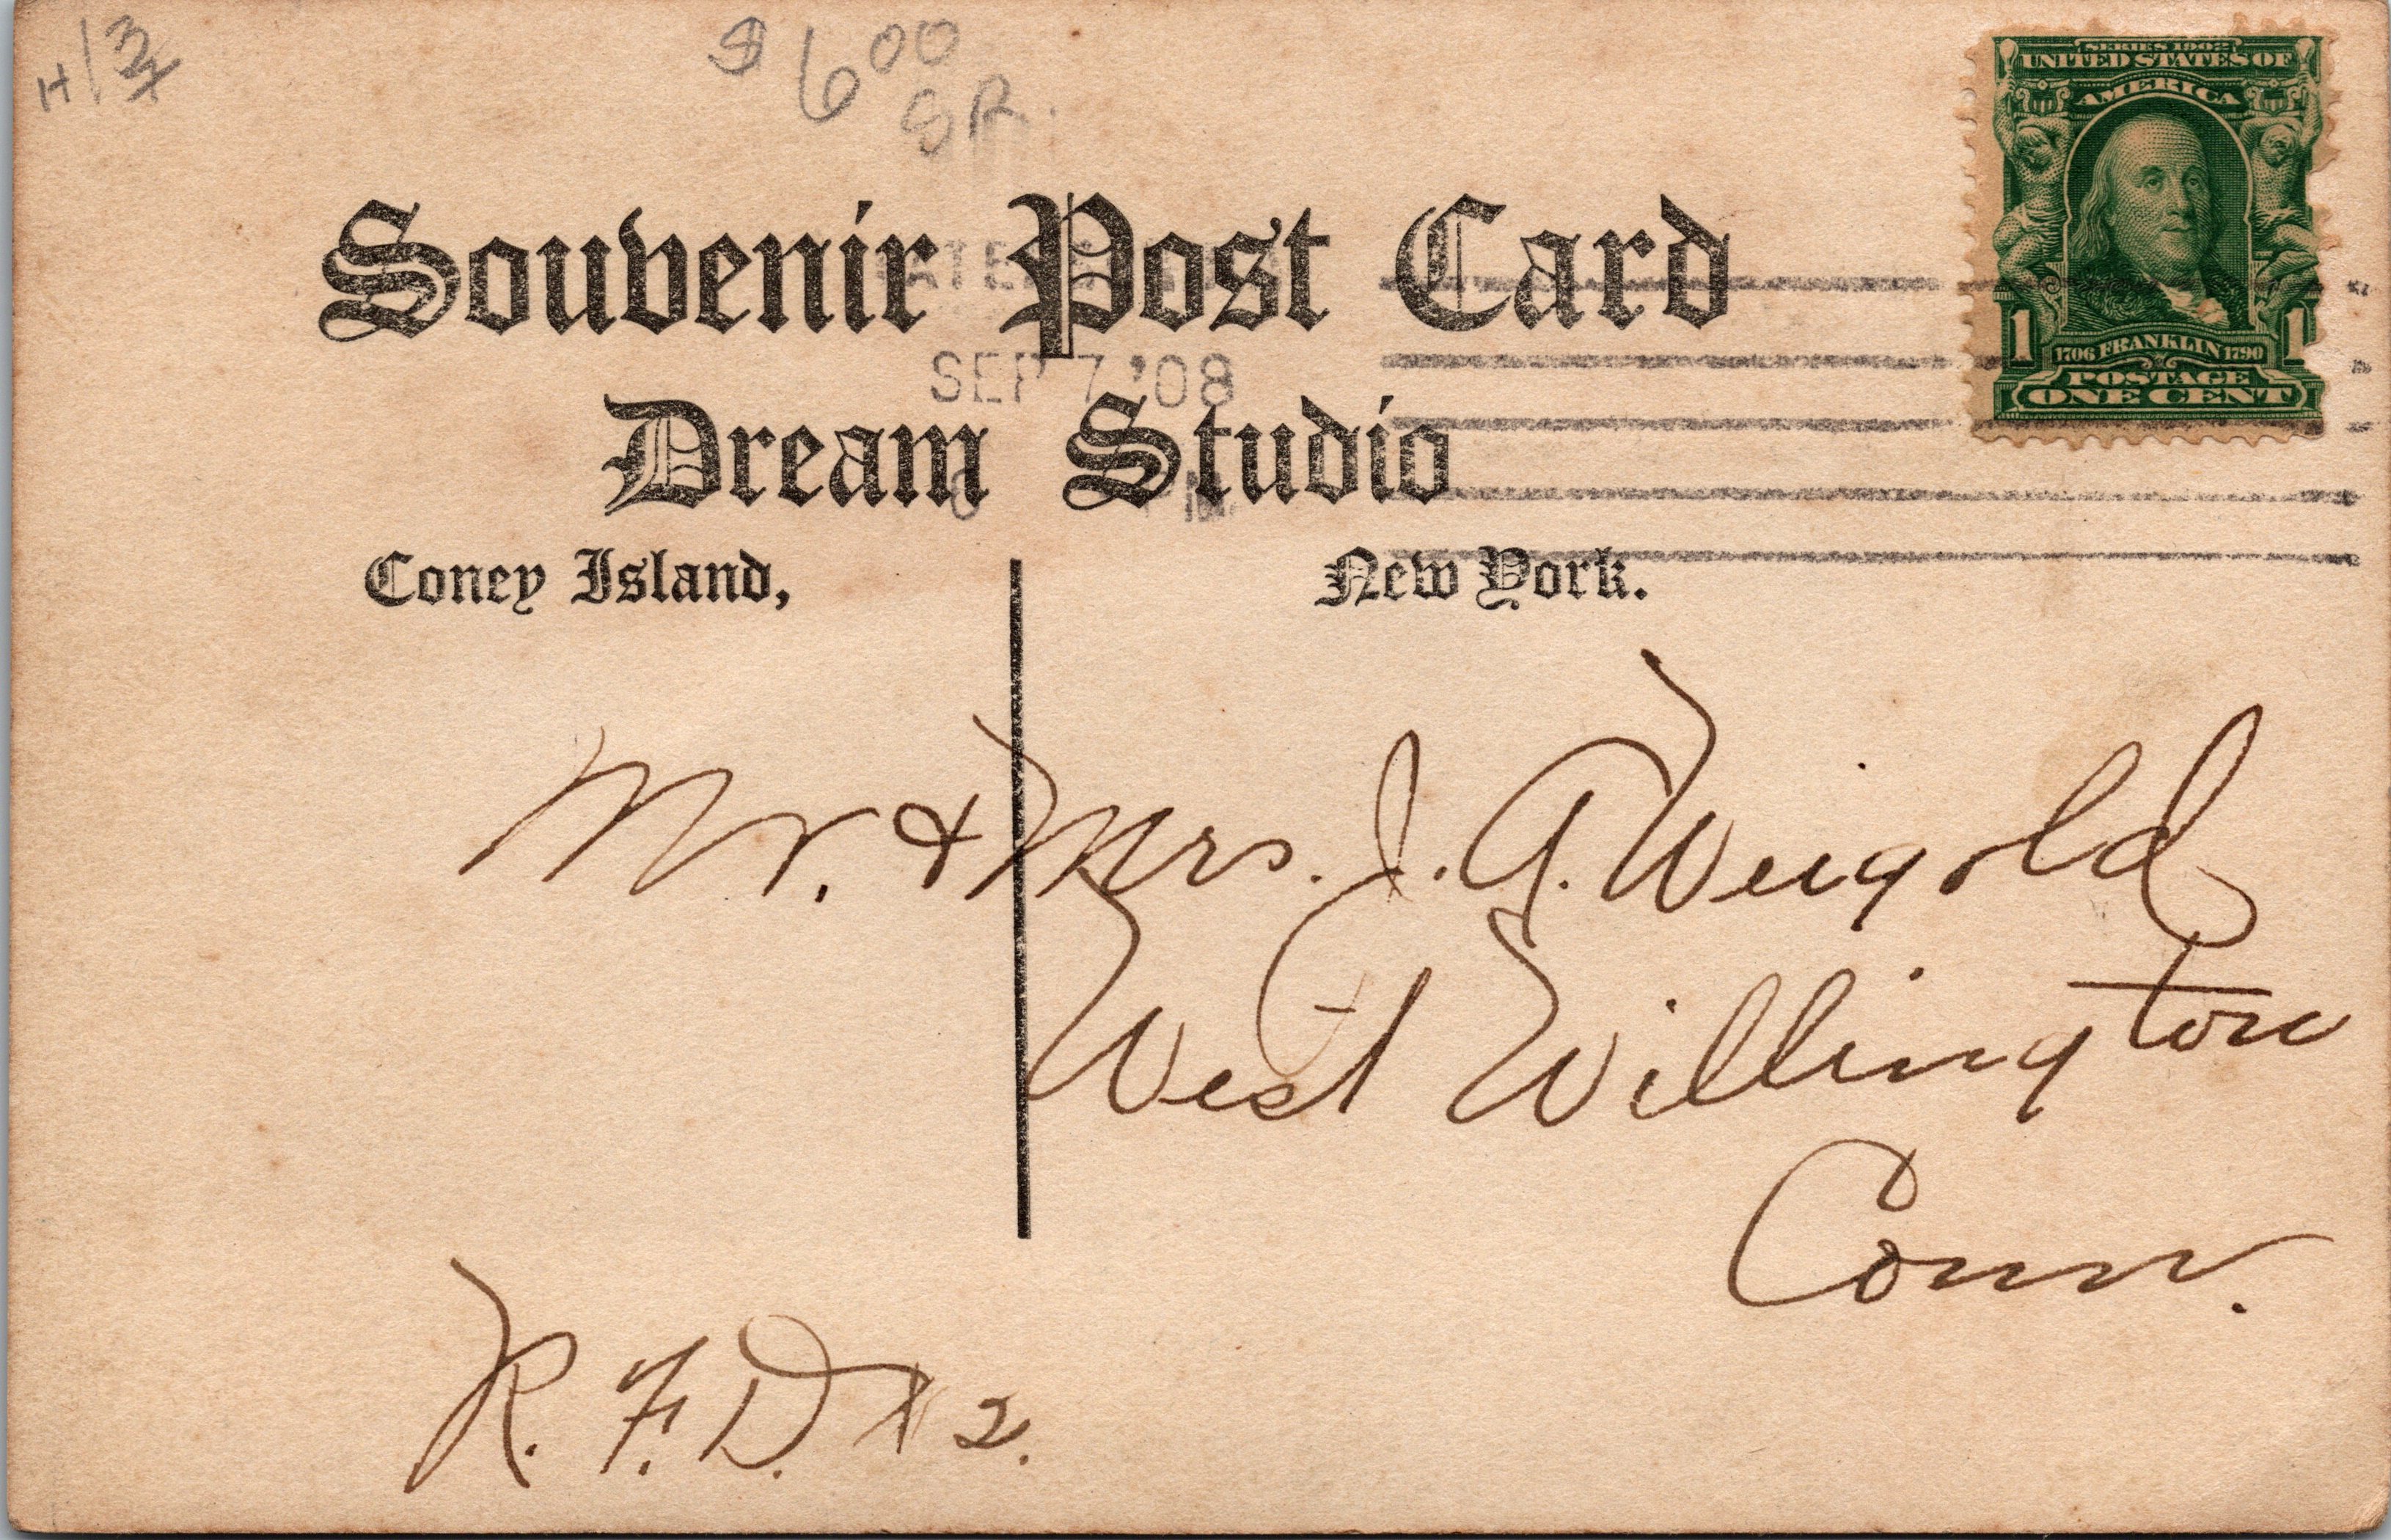 $6.00
SR.
SERIES 1902
UNITED STATES OF
AMERICA
1 1
1706 FRANKLIN 1790
POSTAGE
ONE CENT
Souvenir Post Card
SEP 7 '08
Dream Studio
Coney Island, New York.
Mr. & Mrs. J. A. Weigold
West Willington
Conn.
R. F. D. # 2.